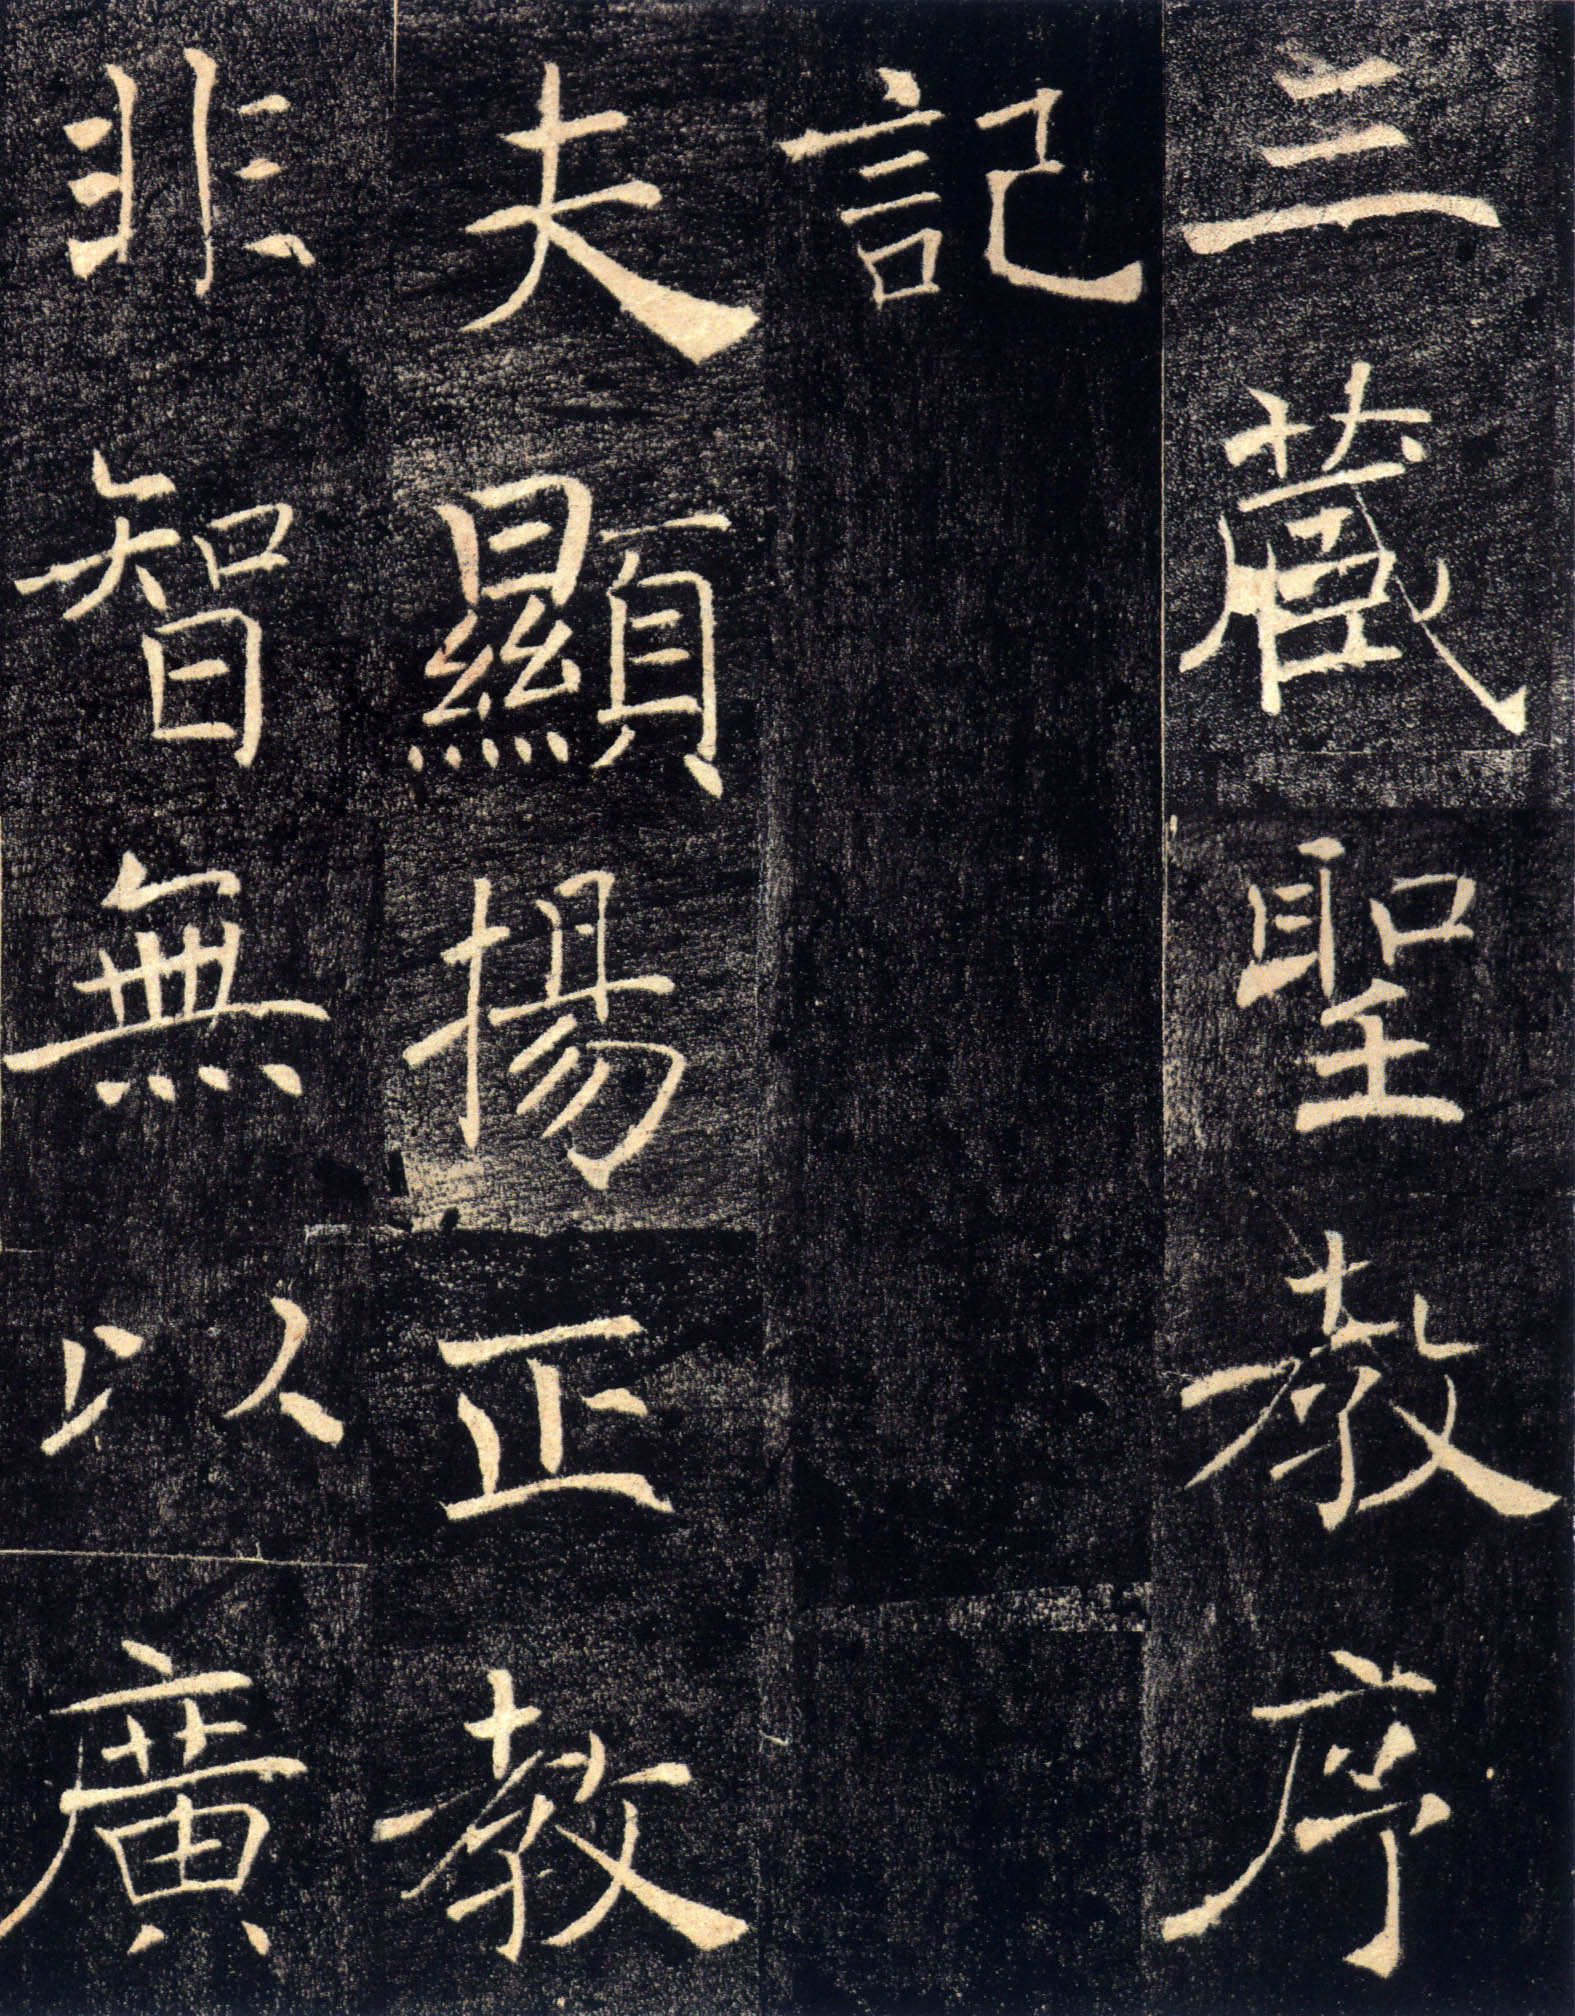 三藏聖教序
記
夫顯揚正教
非智無以廣